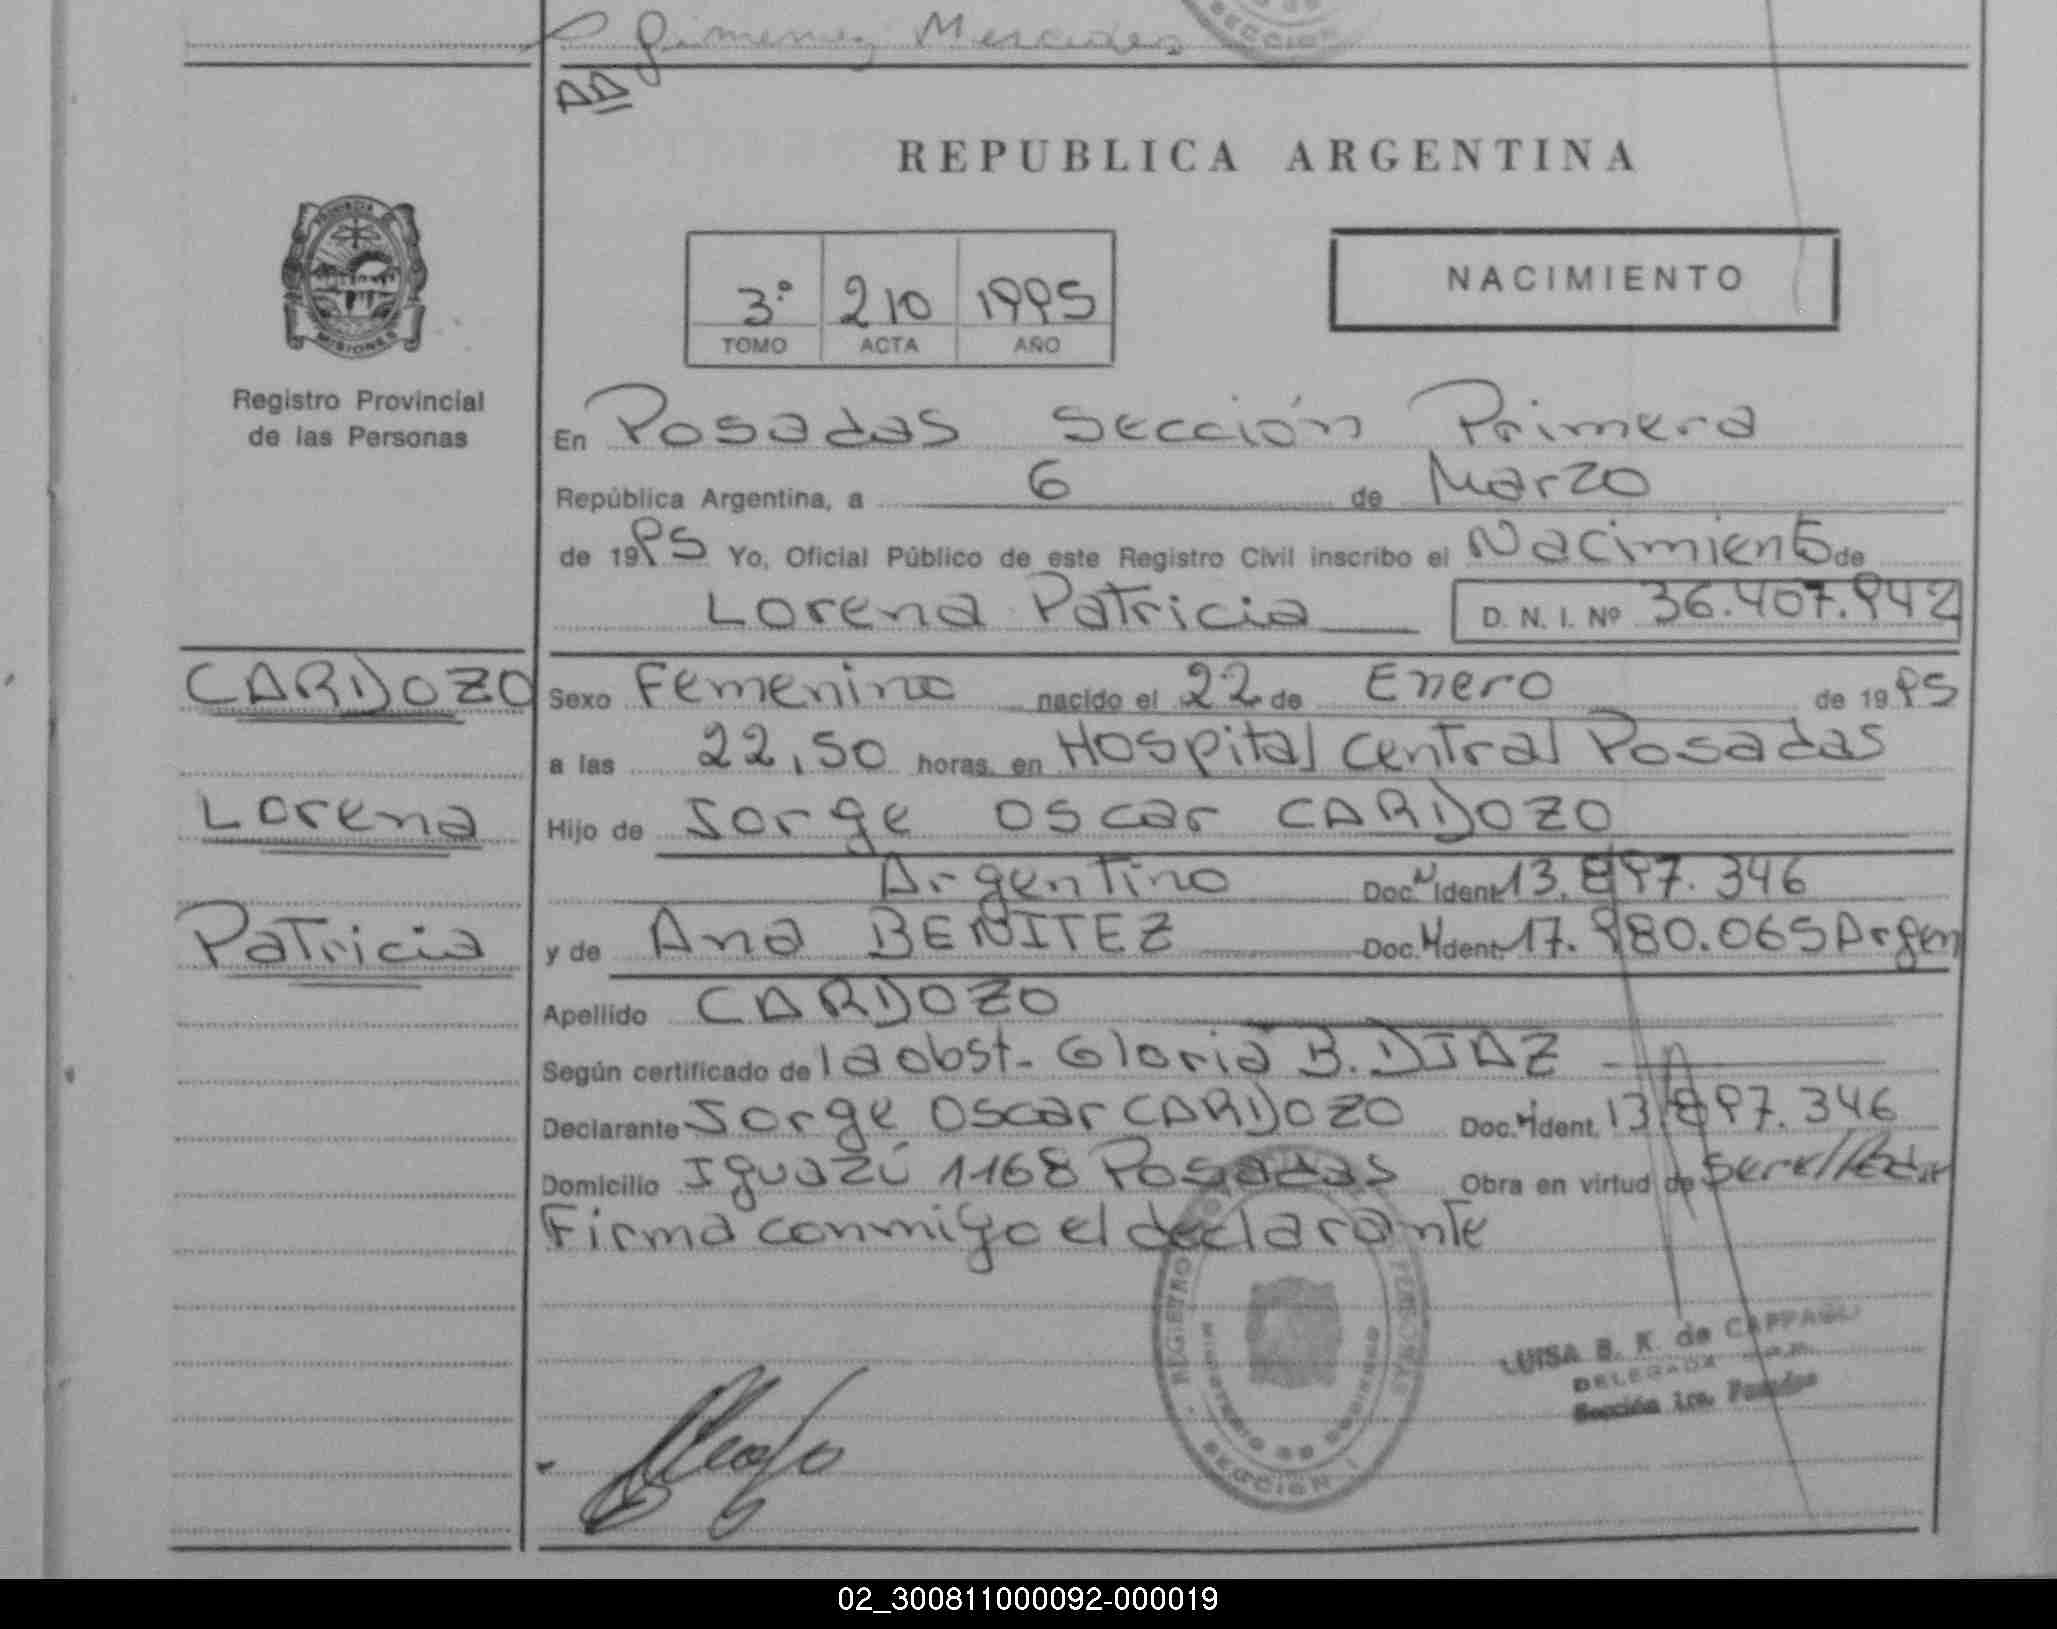 Gimenez Mercedes
SECCION
AA
REPUBLICA ARGENTINA
PROVINCIA DE
MISIONES
3° 210 1995
TOMO ACTA AÑO
NACIMIENTO
Registro Provincial
de las Personas
En Posadas Sección Primera
República Argentina, a 6 de Marzo
de 1995 Yo, Oficial Público de este Registro Civil inscribo el Nacimiento de
Lorena Patricia D. N. I. Nº 36.407.942
CARDOZO
Lorena
Patricia
Sexo Femenino nacido el 22 de Enero de 1995
a las 22,50 horas en Hospital Central Posadas
Hijo de Jorge Oscar CARDOZO
Argentino Doc. N Ident. 13.897.346
y de Ana BENITEZ Doc. N Ident. 17.980.065 Argen
Apellido CARDOZO
Según certificado de la obst. Gloria B. DIAZ
Declarante Jorge Oscar CARDOZO Doc. N Ident. 13.897.346
Domicilio Iguazú 1168 Posadas Obra en virtud de
Firma conmigo el declarante
REGISTRO PERSONAS
MINISTERIO DE GOBIERNO
SECCION 1
LUISA B. K. de
DELEGADA
Sección 1ra. Posadas
02_300811000092-000019